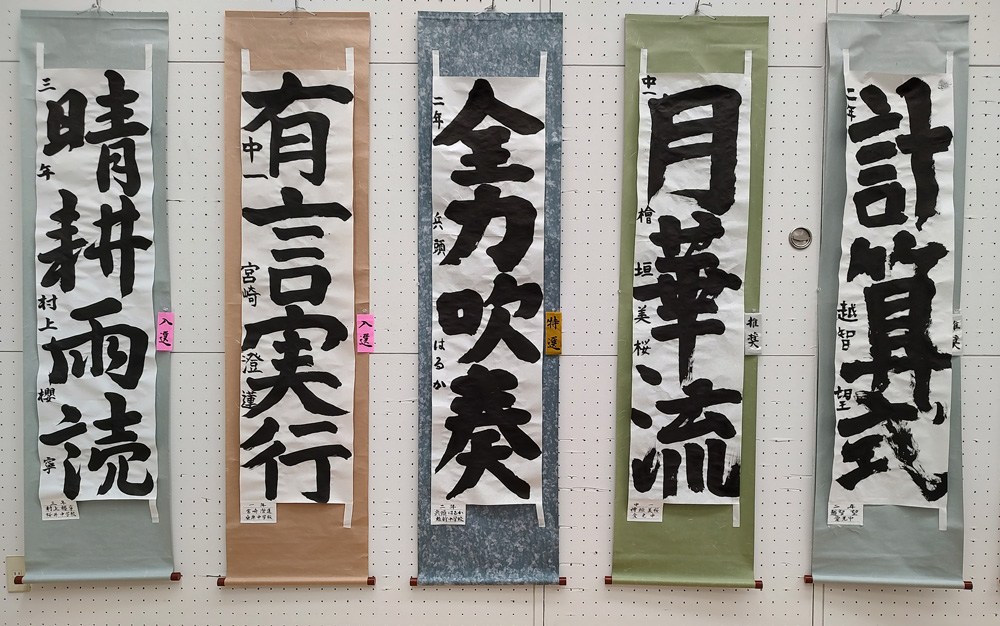 晴耕雨読
三年 村上 櫻寧
入選
有言実行
中一 宮崎澄蓮
入選
全力吹奏
二年 兵頭はるか
特選
二年
兵頭はるか
月華流
中一 檜垣美桜
推奨
計算式
二年 越智望
推奨
二年
越智望